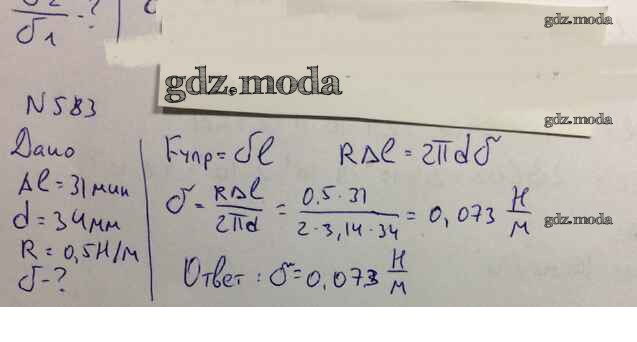 σ2/σ1 - ?
gdz.moda
gdz.moda
gdz.moda
N 583
Дано
Δl = 31 мин
d = 34 мм
R = 0,5 Н/м
σ - ?
Fупр = σl RΔl = 2πdσ
σ = RΔl/2πd = 0.5·31/2·3,14·34 = 0,073 Н/м
gdz.moda
Ответ: σ = 0,073 Н/м